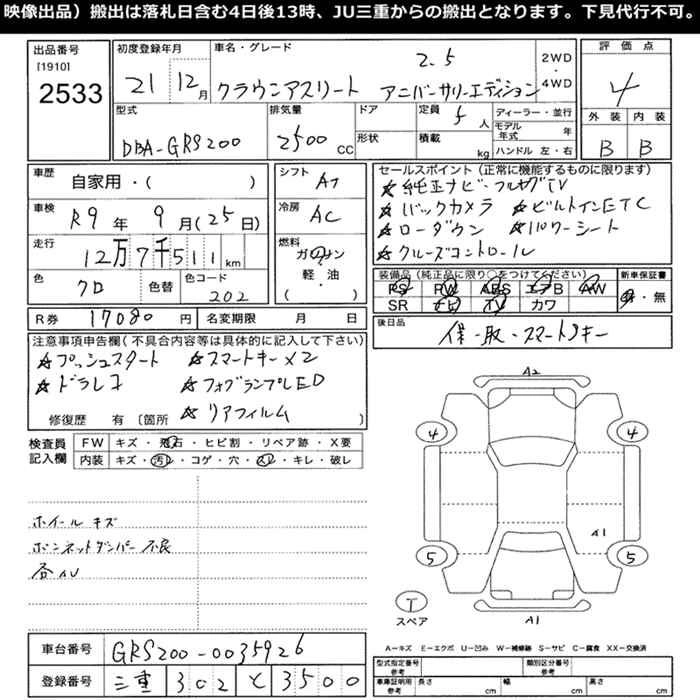 映像出品）搬出は落札日含む4日後13時、JU三重からの搬出となります。下見代行不可。
出品番号 [1910] 2533
初度登録年月 21年 12月
車名・グレード 2.5 クラウンアスリート アニバーサリーエディション
2WD・4WD
評価点 4
外装 内装
B B
型式 DBA-GRS200
排気量 2500 CC
ドア
形状
定員 5人
積載 kg
ディーラー・並行
モデル年式 年
ハンドル 左・右
車歴 自家用・( )
車検 R9年 9月(25日)
走行 12万7千511km
色 クロ 色替 色コード 202
シフト AT
冷房 AC
燃料 ガソリン・軽・油
( )
R券 17080円 名変期限 月 日
セールスポイント（正常に機能するものに限ります）
☆純正ナビ・フルセグTV
☆バックカメラ ☆ビルトインETC
☆ローダウン ☆パワーシート
☆クルーズコントロール
装備品（純正品に限り○をつけてください） 新車保証書
PS PW ABS エアB AW 有・無
SR ナビ TV カワ
後日品 保・取・スマートキー
注意事項申告欄(不具合内容等は具体的に記入して下さい)
☆プッシュスタート ☆スマートキー×2
☆ドラレコ ☆フォグランプLED
☆リアフィルム
修復歴 有〔箇所
検査員記入欄
FW キズ・飛石・ヒビ割・リペア跡・X要
内装 キズ・汚レ・コゲ・穴・スレ・キレ・破レ
ホイールキズ
ボンネットダンパー不良
各AU
A2
4 4
A1
5 5
T
スペア
A1
A－キズ E－エクボ U－凹み W－補修跡 S－サビ C－腐食 XX－交換済
車台番号 GRS200-0035926
登録番号 三重 302 と 3500
型式指定番号 参考 類別区分番号 参考
車庫証明用 参考 長さ cm 幅 cm 高さ cm